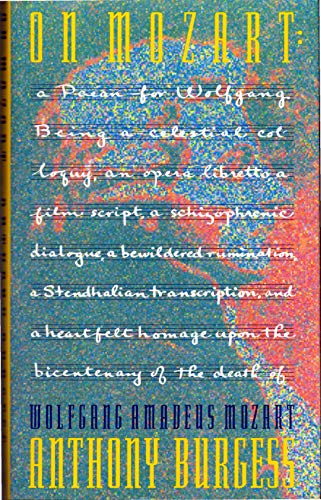 ON MOZART:
a Paean for Wolfgang
Being a celestial col
loquy, an opera libretto, a
film script, a schizophrenic
dialogue, a bewildered rumination,
a Stendhalian transcription, and
a heartfelt homage upon the
bicentenary of the death of
WOLFGANG AMADEUS MOZART
ANTHONY BURGESS